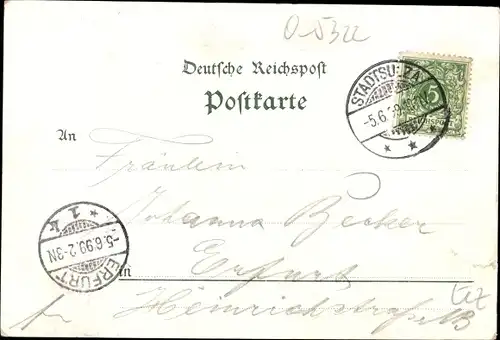 O-5322
Deutsche Reichspost
Postkarte
STADTSULZA
-5.6.
5
An
Fräulein
Johanna Becker
in Erfurt
Heinrichstraße
ERFURT
-5.6.99.2-3N
* 1 *